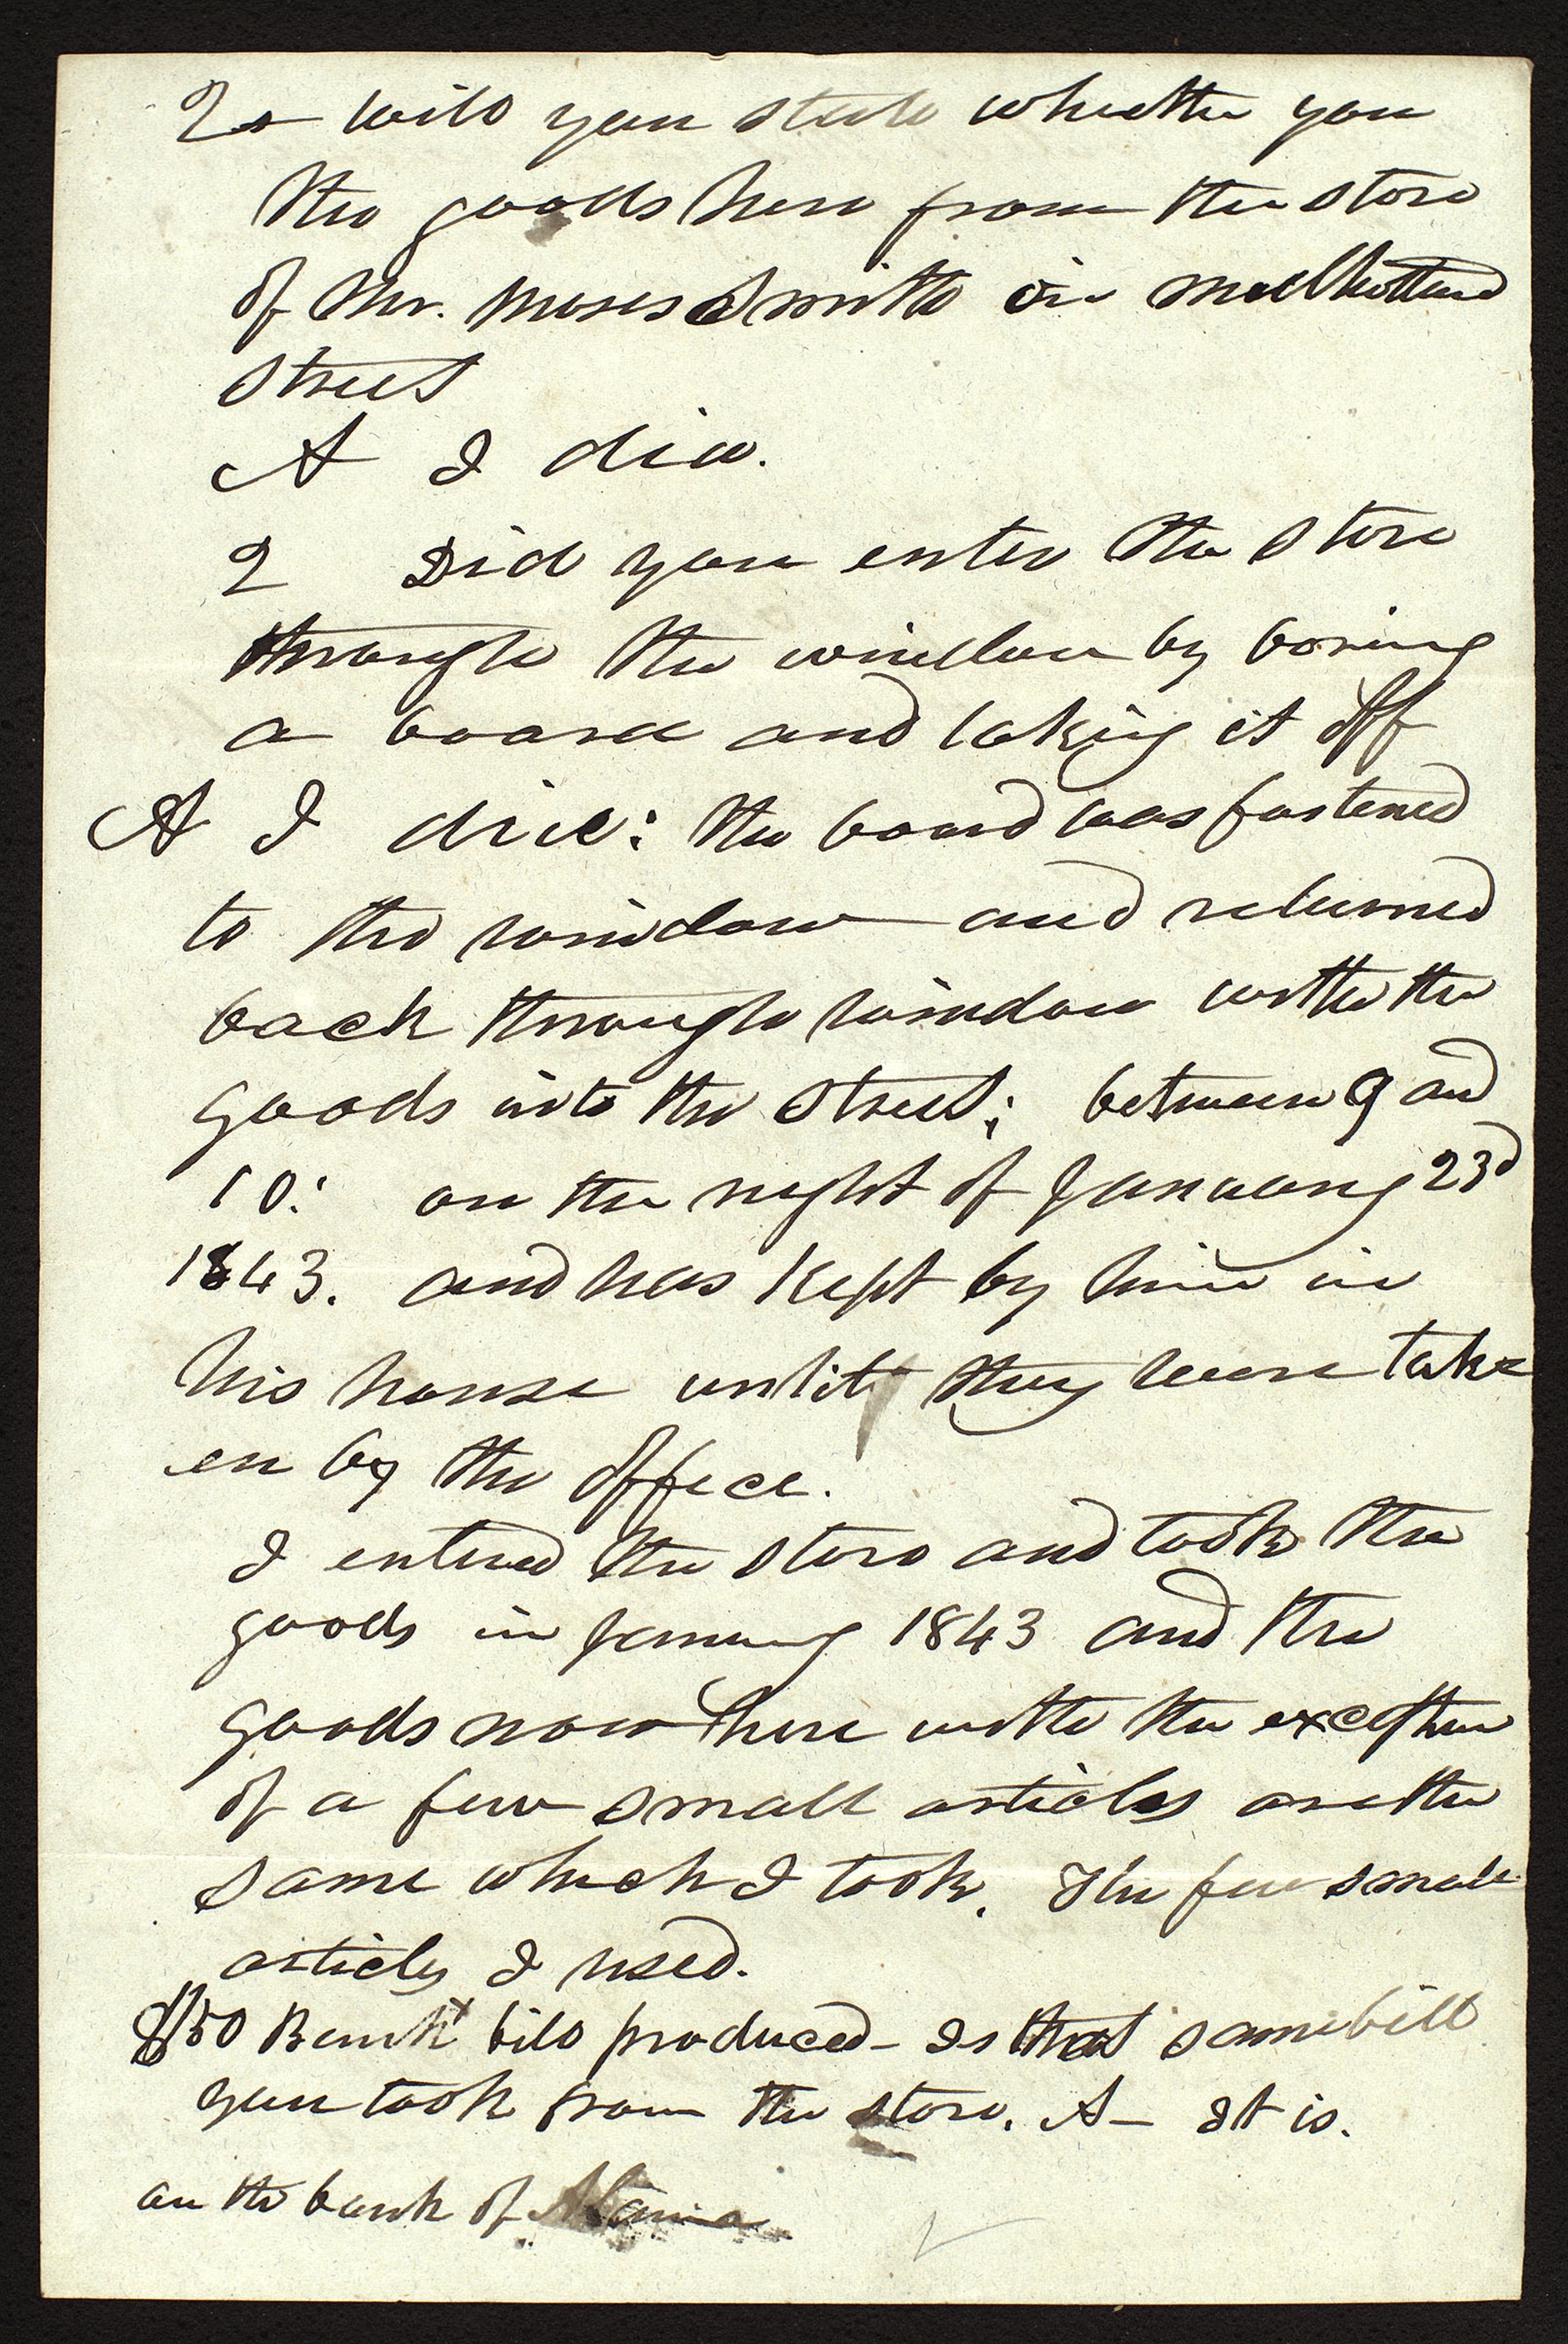 Q will you state whether you
the goods here from the store
of Mr. Moses Smith in
Street
A I did.
Q Did you enter the store
through the window by boring
a board and taking it off
A I did: the board was fastened
to the window and returned
back through window with the
goods into the Street; between 9 and
10: on the night of January 23d
1843. and was kept by him in
his house until they were take
en by the office.
I entered the store and took the
goods in January 1843 and the
goods now here with the exception
of a few small articles are the
same which I took. The few small
articles I used.
$50 Bank bill produced - Is that same bill
you took from the store. A - It is.
on the bank of